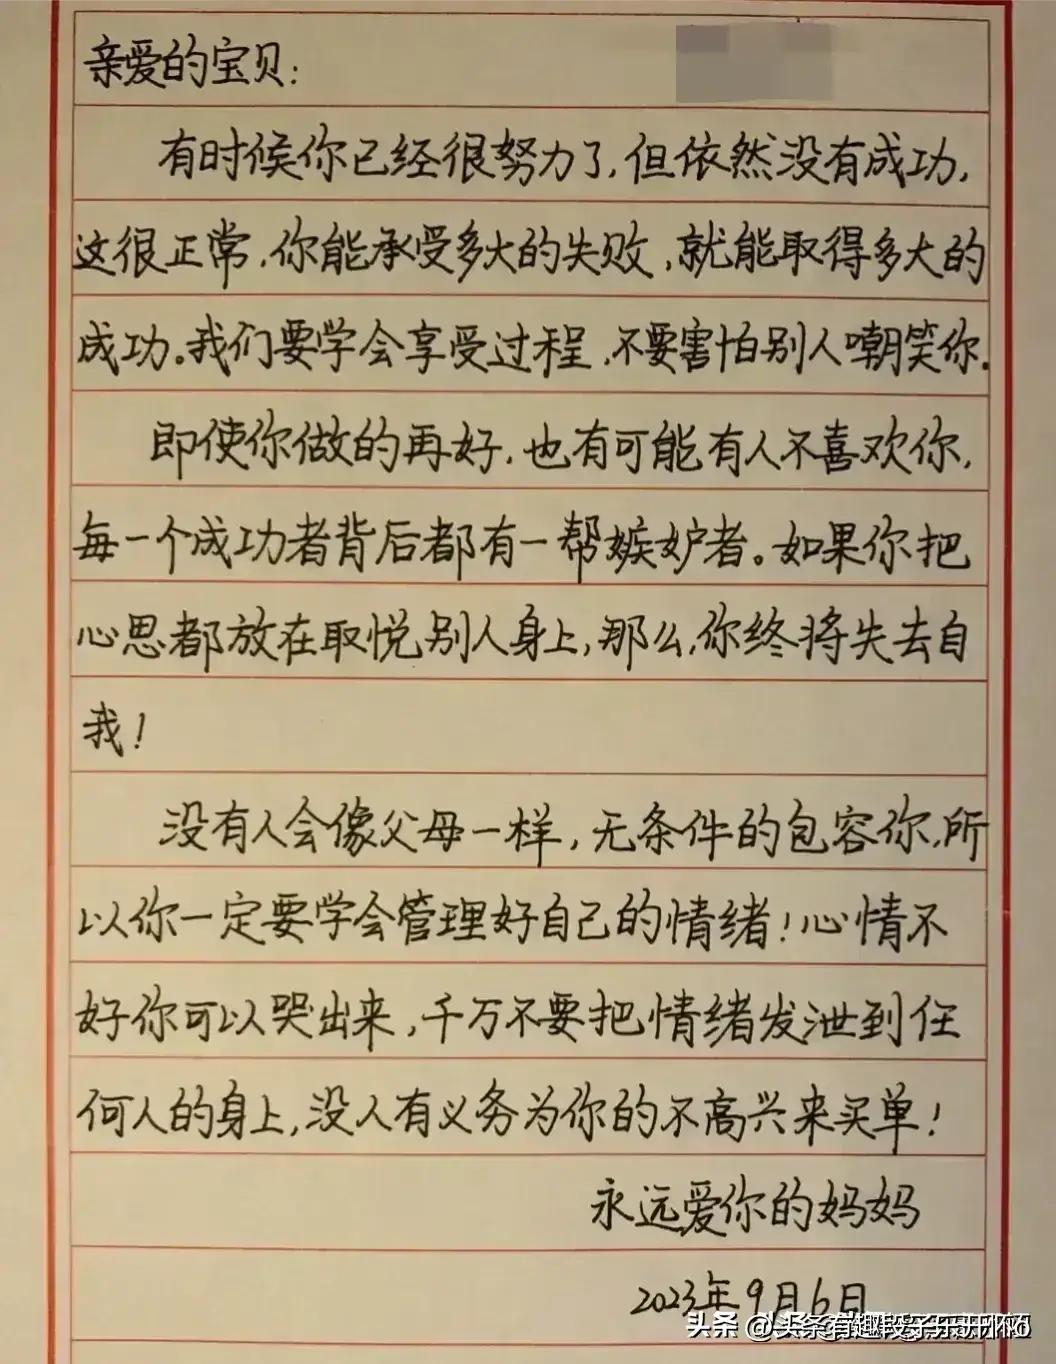 亲爱的宝贝:
有时候你已经很努力了,但依然没有成功,
这很正常,你能承受多大的失败,就能取得多大的
成功。我们要学会享受过程,不要害怕别人嘲笑你.
即使你做的再好,也有可能有人不喜欢你,
每一个成功者背后都有一帮嫉妒者。如果你把
心思都放在取悦别人身上,那么,你终将失去自
我!
没有人会像父母一样,无条件的包容你,所
以你一定要学会管理好自己的情绪!心情不
好你可以哭出来,千万不要把情绪发泄到任
何人的身上,没人有义务为你的不高兴来买单!
永远爱你的妈妈
2023年9月6日
头条 @头条有趣段子